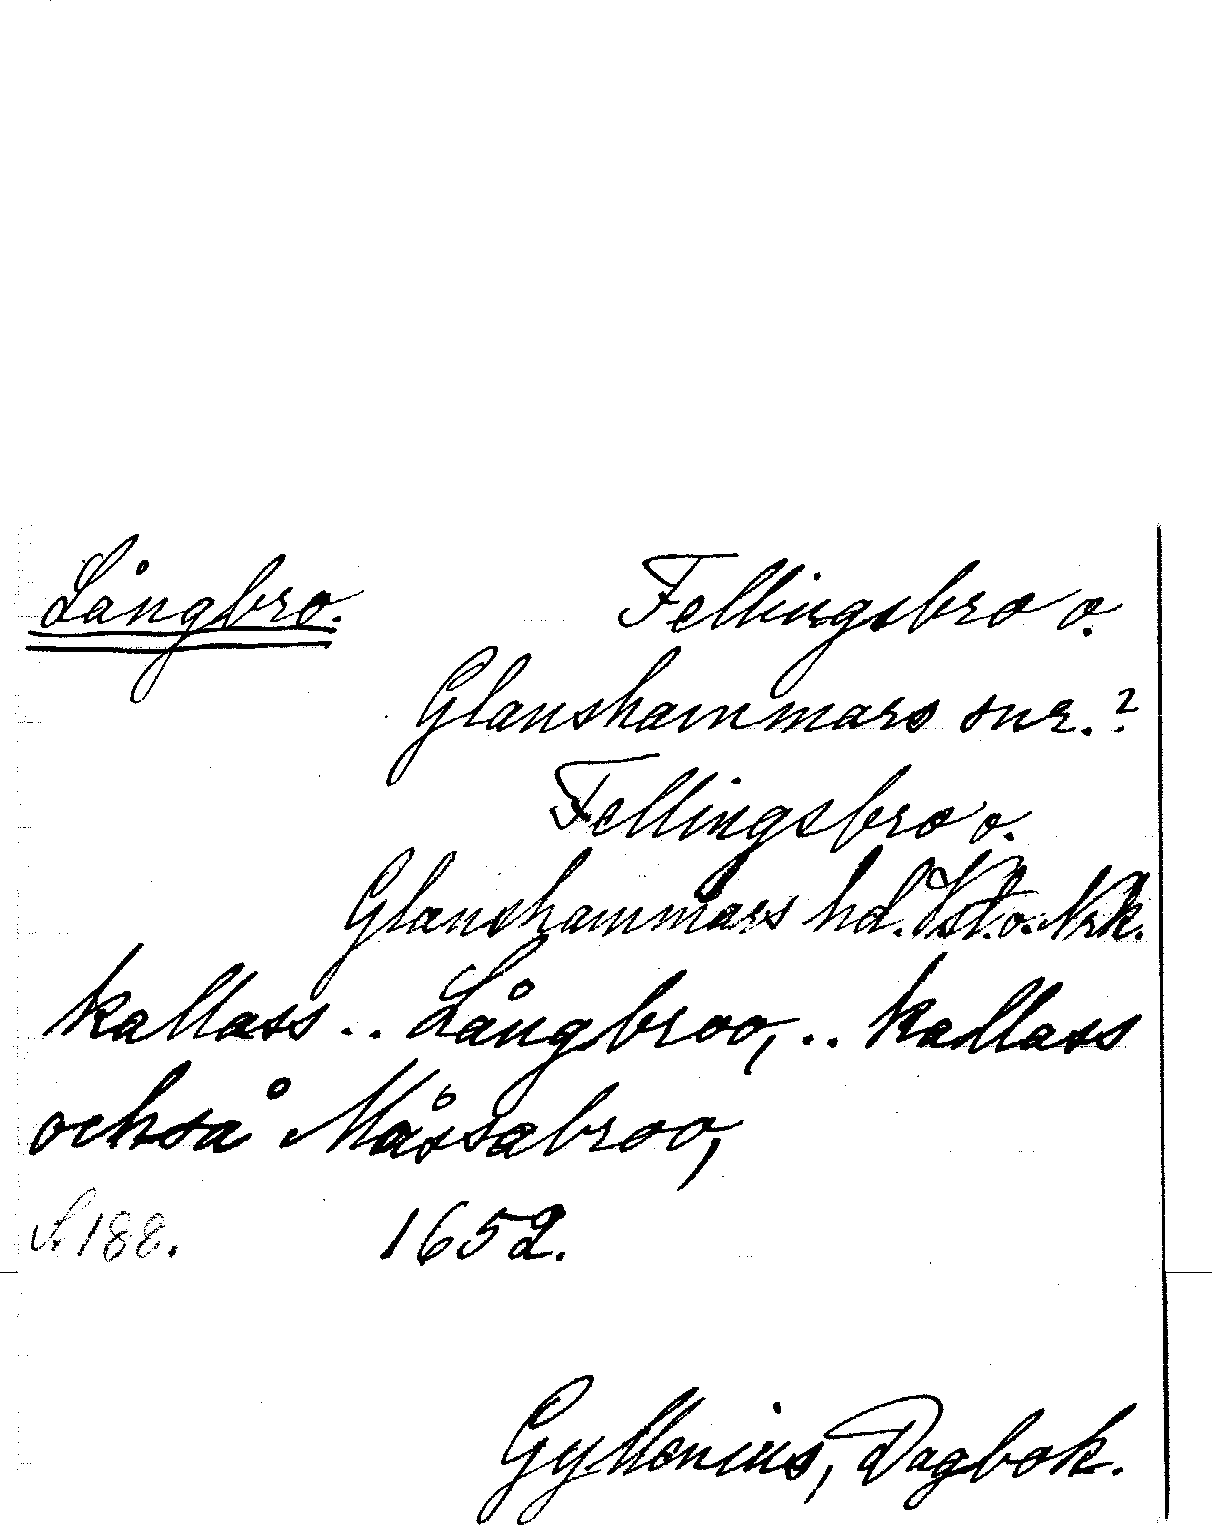 Långbro. Fellingsbro o.
Glanshammars snr.?
Fellingsbro o.
Glanshammars hd. Vstm. o. Nrk.
kallass .. Långbroo, .. kallass
också Måssabroo,
s. 188. 1652.
Gyllenius, Dagbok.